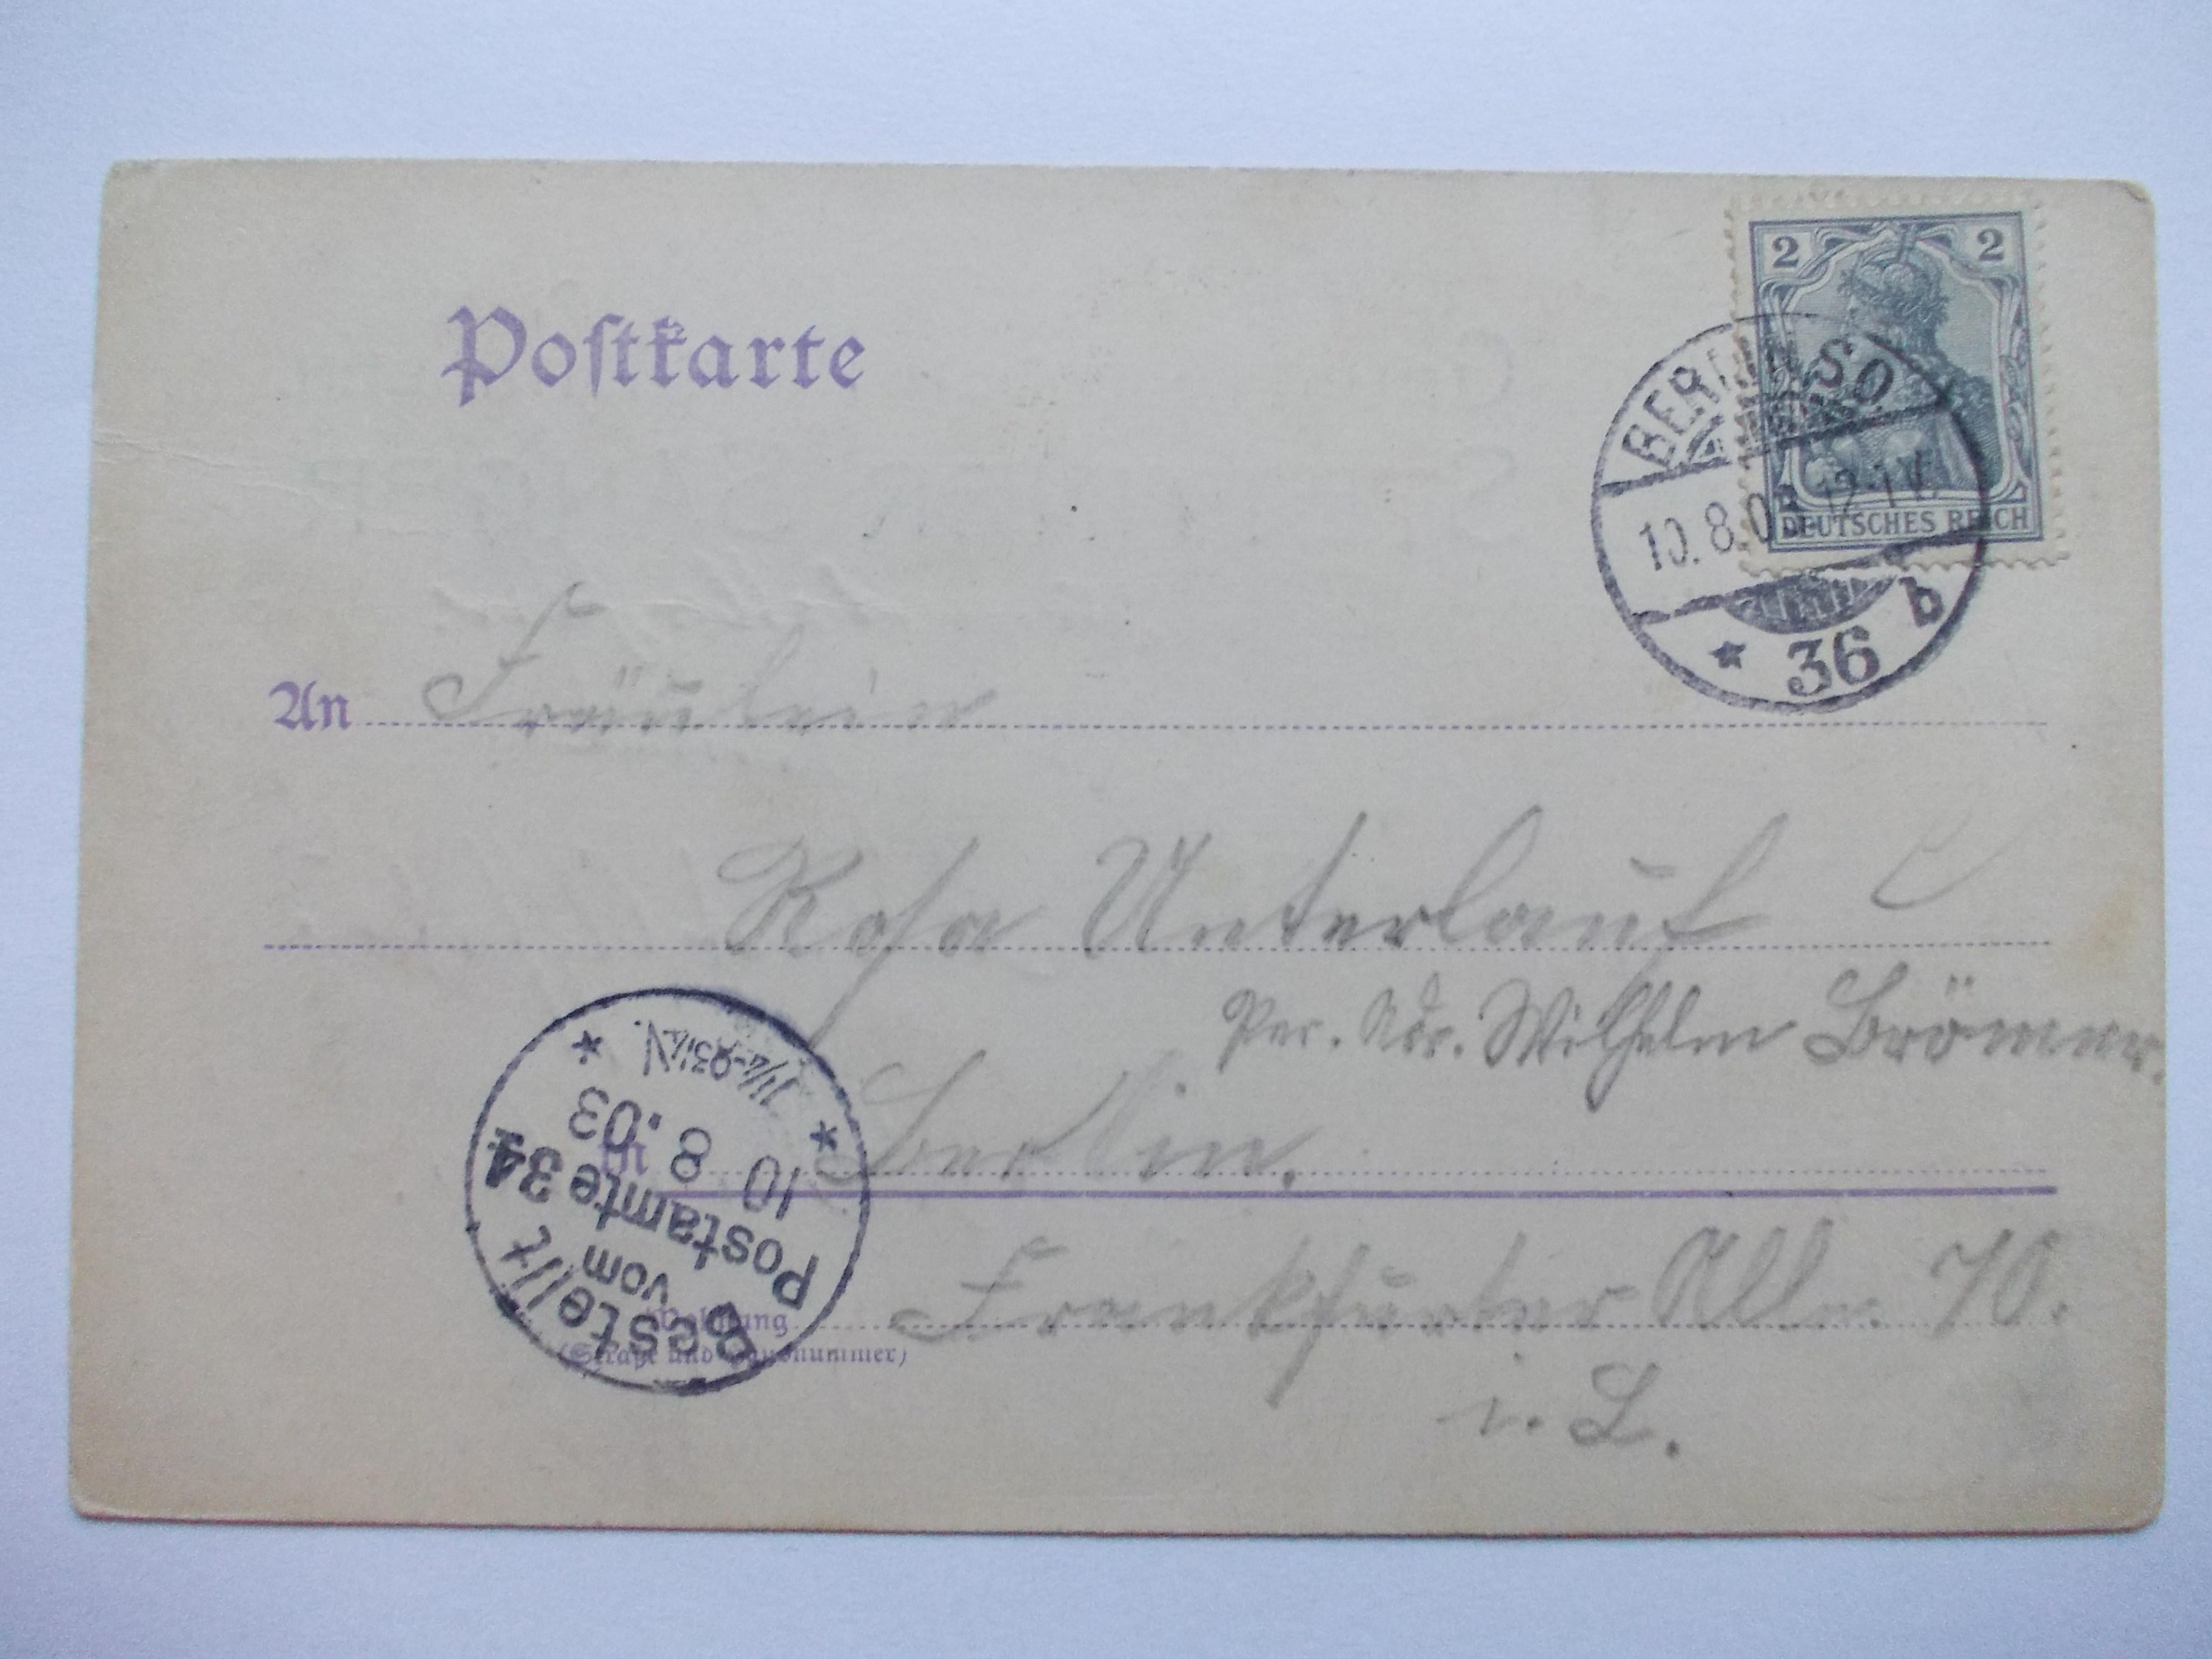 Postkarte
2 2
DEUTSCHES REICH
BERLIN SO
10.8.03. 12-1 N.
* 36 b
An Fräulein
Rosa Unterlauf
Per. Adr. Wilhelm Brömmer.
in Berlin.
Frankfurter Allee 70.
Wohnung
(Straße und Hausnummer)
i. L.
Bestellt
vom
Postamte 34
10 8 .03